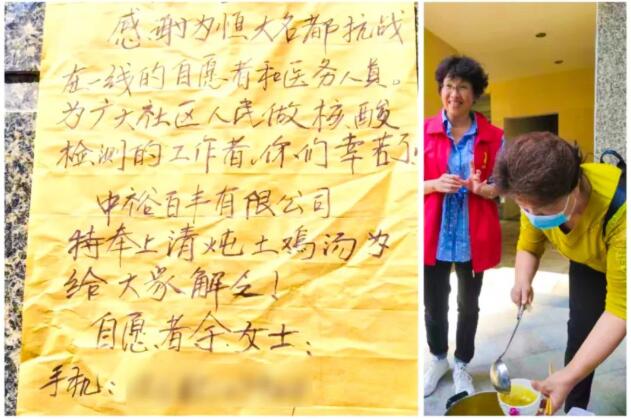 感谢为恒大名都抗战
在一线的自愿者和医务人员。
为广大社区人民做核酸
检测的工作者,你们辛苦了!
中裕百丰有限公司
特奉上清炖土鸡汤为
给大家解乏!
自愿者余女士:
手机: